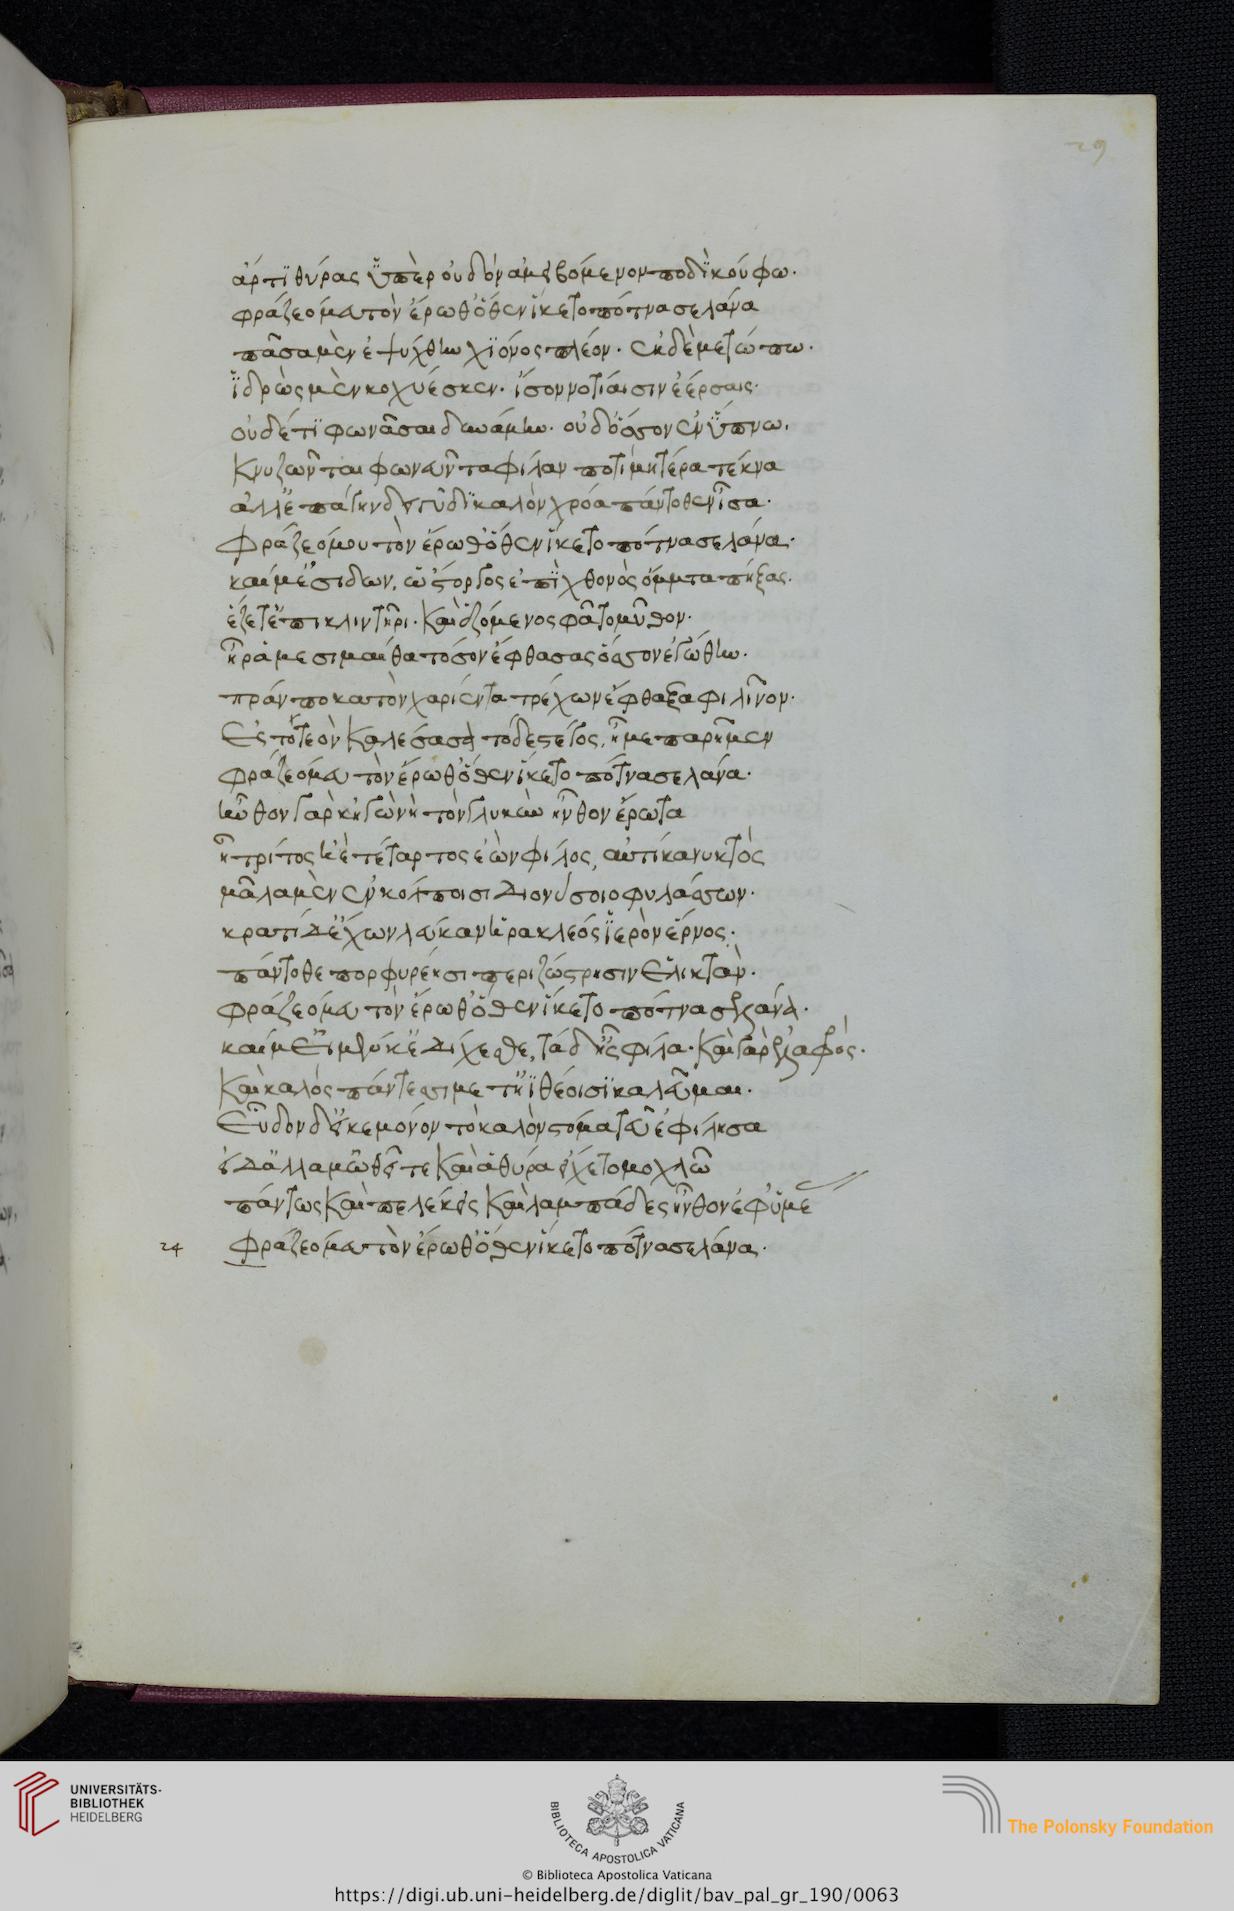 29
ἄρτϊ θύρας ὑπὲρ οὐδὸν ἀμειβόμενον ποδὶ κούφω.
φράζεό μευ τὸν ἔρωθ' ὅθεν ἵκετο πότνα σελάνα
πᾶσα μὲν ἐψύχθην χϊόνος πλέον. ἐκ δὲ μετώπω.
ἱδρὼς μὲν κοχυέσκεν. ἴσον νοτίαισιν ἐέρσαις.
οὐδέ τϊ φωνᾶσαι δυνάμην. οὐδ' ὅσσον ἐν ὕπνω.
κνυζῶνται φωνῶντα φίλαν ποτὶ μητέρα τέκνα
ἀλλ' ἐπάγην δαγῦδϊ καλὸν χρόα πάντοθεν ἶσα.
Φράζεό μου τὸν ἔρωθ' ὅθεν ἵκετο πότνα σελάνα.
καί μ' ἐσιδὼν. ὥστοργος ἐπὶ χθονὸς ὄμματα πήξας.
ἕζετ' ἐπι κλιντῆρι. καὶ ἑζόμενος φάτο μῦθον.
ἦ ῥά με σιμαίθα τόσον ἔφθασας ὅσσον ἐγώ θην.
πράν ποκα τὸν χαρίεντα τρέχων ἔφθαξα φιλῖνον.
Ἐς τὸ τεὸν καλέσασα τόδε στέγος. ἤ με παρῆμεν
φράζεό μευ τὸν ἔρωθ' ὅθεν ἵκετο πότνα σελάνα.
ἦνθον γὰρ κἠγὼ νὴ τὸν γλυκὺν ἦνθον ἔρωτα
ἢ τρίτος ἠὲ τέταρτος ἐὼν φίλος, αὐτίκα νυκτὸς
μᾶλα μὲν ἐν κόλποισι Διονύσοιο φυλάσσων.
κρατὶ δ' ἔχων λεύκαν ἡρακλέος ἱερὸν ἔρνος.
πάντοθε πορφυρέησι περιζώστρησιν ἑλικτάν.
φράζεό μευ τὸν ἔρωθ' ὅθεν ἵκετο πότνα σελάνα.
καί μ' εἰ μέν κ' ἐδέχεσθε, τάδ' ἦς φίλα. καὶ γὰρ ἐλαφρὸς.
καὶ καλός πάντεσσι μετ' ἠϊθέοισϊ καλεῦμαι.
Εὗδόν δ' εἴ κε μόνον τὸ καλὸν στόμα τεῦ ἐφίλησα
εἰ δ' ἄλλα μ' ὠθεῖτε καὶ ἁ θύρα εἴχετο μοχλῶ
πάντως καὶ πελέκεις καὶ λαμπάδες ἦνθον ἐφ' ὑμέ
24 Φράζεό μευ τὸν ἔρωθ' ὅθεν ἵκετο πότνα σελάνα.
UNIVERSITÄTS-
BIBLIOTHEK
HEIDELBERG
BIBLIOTECA APOSTOLICA VATICANA
The Polonsky Foundation
© Biblioteca Apostolica Vaticana
https://digi.ub.uni-heidelberg.de/diglit/bav_pal_gr_190/0063